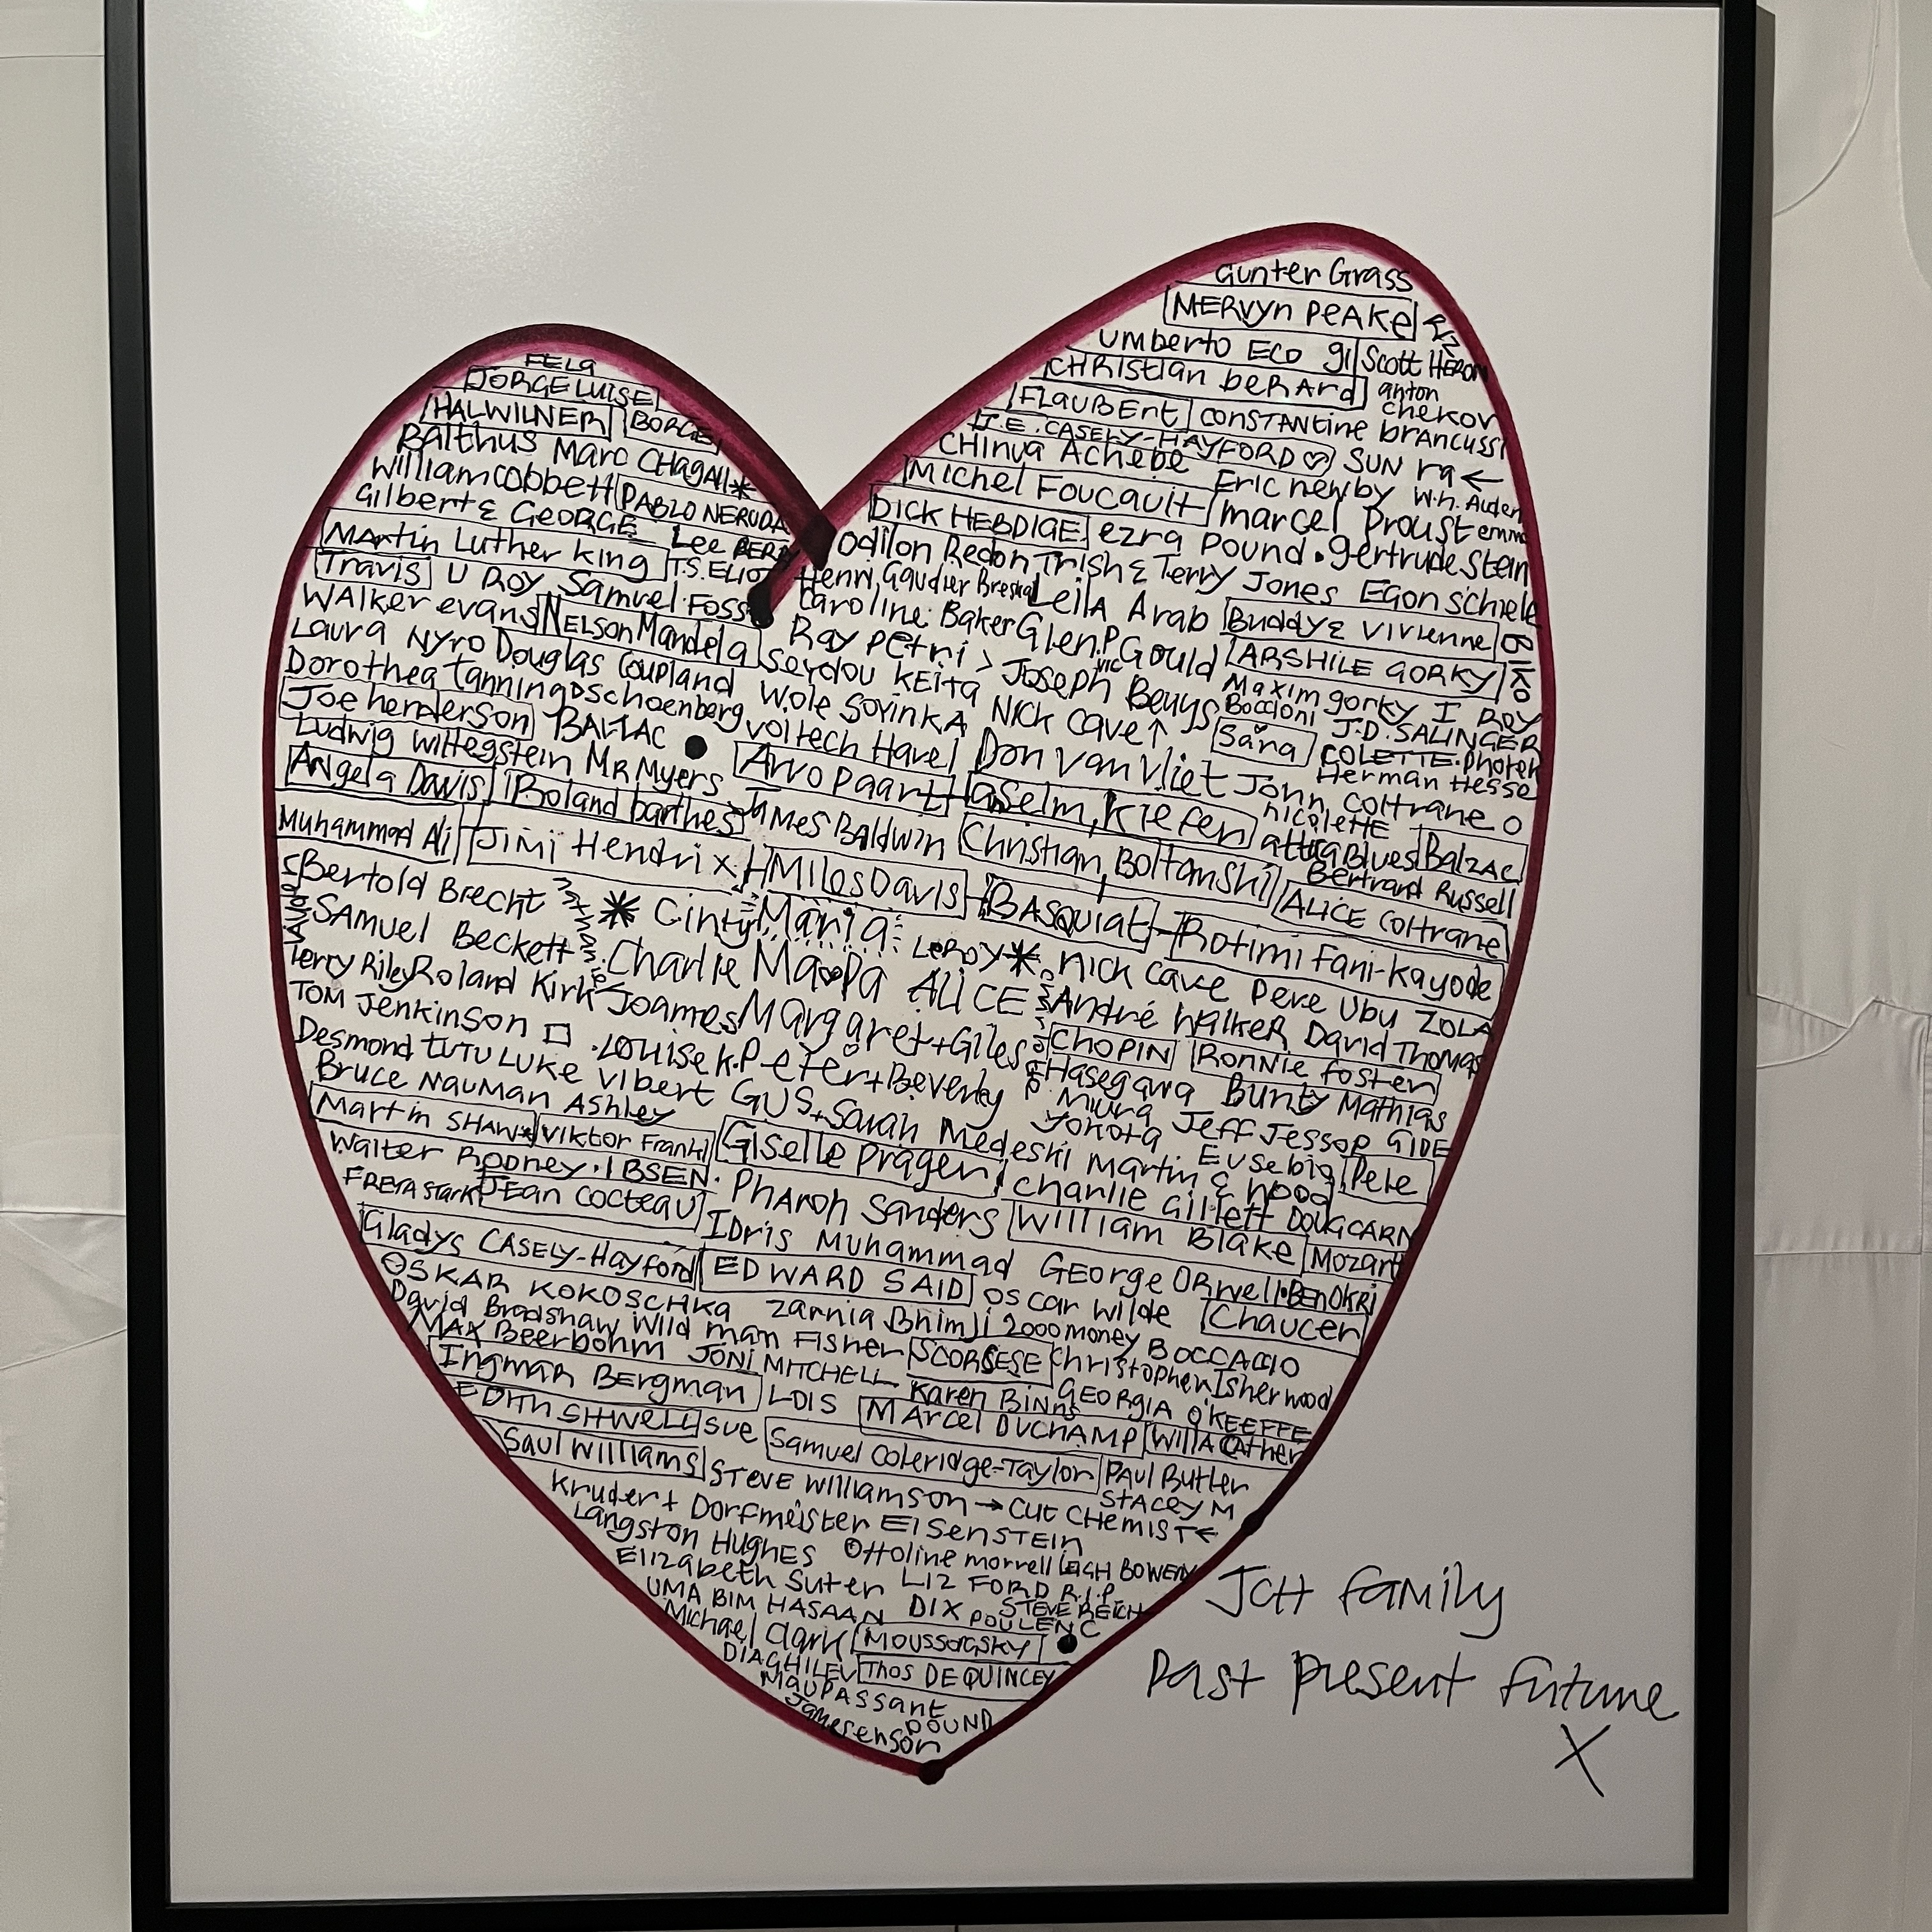 FELA
JORGE LUISE
HALWILNER BORGES
Balthus Marc CHagall*
William Cobbett PABLO NERUDA
Gilbert & GEORGE Lee PERRY
Martin Luther King T.S. ELIOT
Travis U ROY Samuel FOSSO
WALKER evans NELSON Mandela
Laura NYRO Douglas Coupland
Dorothea tanning schoenberg
Joe henderson BALZAC
Ludwig Wittegstein MR Myers
Angela Davis Roland barthes
Gunter Grass
MERVYN PEAKE
umberto ECO gil Scott HERON
CHRIStian beRARd anton chekov
FLAUBErt CONSTANtine brancussi
J.E. CASELY-HAYFORD SUN ra ←
CHINUA Achebe Eric newby W.H. Auden
Michel Foucault marcel Proust
DICK HEBDIGE ezra Pound • gertrude Stein
odilon Redon Trish & Terry Jones Egon Schiele
Henri, Gaudier Breska Leila Arab Buddy & Vivienne
Caroline Baker Glen Gould ARSHILE GORKY
Ray Petri > Joseph Beuys Maxim gorky I ROY
Seydou KEITA NICK cave ↑ Boccioni J.D. SALINGER
Wole SOYINKA Don van Vliet Sana COLETTE. Photek
voltech Havel John Coltrane Herman Hesse
Arvo Paart anselm, kiefer nicolette
James Baldwin Christian, Boltanski attica Blues Balzac
Bertrand Russell
Muhammad Ali Jimi Hendrix Miles Davis BASQUIAT ALICE Coltrane
Bertold Brecht * Cinty Maria LeROY * Rotimi Fani-Kayode
SAMUEL Beckett Charlie Ma Pa ALICE NICK Cave Pere Ubu ZOLA
Terry Riley Roland Kirk Joames Margaret + Giles André Walker David Thomas
TOM Jenkinson Louise K. Peter + Beverley CHOPIN Ronnie foster
Desmond TUTU LUKE Vibert GUS + Sarah Hasegawa Bunty Mathias
Bruce NAUMAN Ashley Medeski Martin & Wood Miura Jeff Jessop GIDE
Martin SHAW Viktor Frankl Giselle Prager Yokota Eusebio Pele
Walter Rodney. IBSEN. Pharoh Sanders charlie Gillett DOUG CARN
FREYA Stark JEan cocteau IDris Muhammad William Blake Mozart
Gladys CASELY-Hayford EDWARD SAID GEorge ORwell BEN OKRI
OSKAR KOKOSCHKA Zarnia Bhimji oscar wilde Chaucer
David Bradshaw Wild man FISHER 2000 money BOCCACIO
MAX Beerbohm JONI MITCHELL SCORSESE Christopher Isherwood
Ingmar Bergman LOIS Karen Binns GEORGIA O'KEEFFE
EDITH SITWELL Sue MARCEL DUCHAMP WILLA Cather
Saul Williams Samuel Coleridge-Taylor PAUL Butler
STEVE Williamson → CUT CHEMIST ← STACEY M
Kruder + Dorfmeister EISENSTEIN
Langston HUGHES Ottoline morrell LEIGH BOWERY
Elizabeth Suter LIZ FORD R.I.P
UMA BIM HASAAN DIX STEVE REICH
POULENC
Michael Clark MOUSSORGSKY
DIAGHILEV Thos DE QUINCEY
MAUPASSANT
James enson POUND
JCH family
Past present future
X